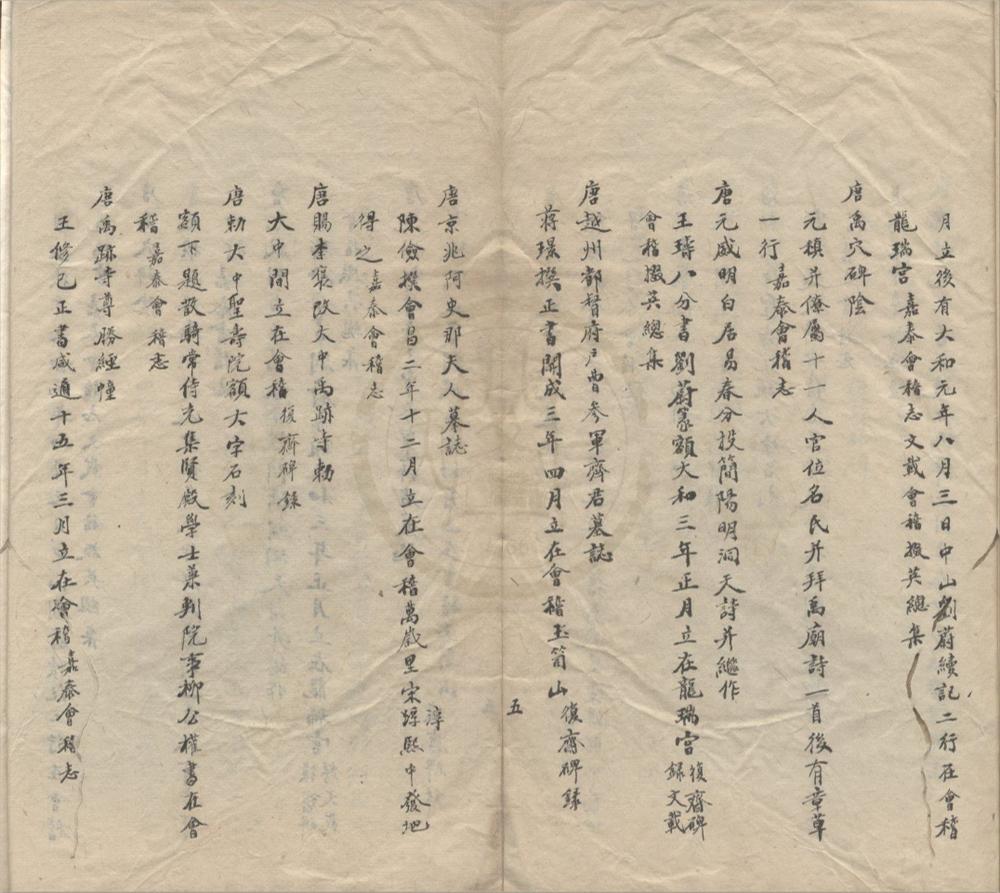 月立後有大和元年八月三日中山劉蔚續記二行在會稽
龍瑞宮 嘉泰會稽志文載會稽掇英總集
唐禹穴碑陰
元稹并僚屬十一人官位名氏并拜禹廟詩一首後有章草
一行 嘉泰會稽志
唐元威明白居易春分投簡陽明洞天詩并繼作
王璹八分書劉蔚篆額大和三年正月立在龍瑞宮 復齋碑錄文載
會稽掇英總集
唐越州都督府戶曹參軍齊君墓誌
蔣璟撰正書開成三年四月立在會稽玉笥山 復齋碑錄
五
唐京兆阿史那夫人墓誌
陳儉撰會昌二年十二月立在會稽萬歲里宋踔熙中發地
淳
得之 嘉泰會稽志
唐賜李褒改大中禹跡寺勅
大中間立在會稽 復齋碑錄
唐勅大中聖壽院額大字石刻
額下題散騎常侍充集賢殿學士兼判院事柳公權書在會
稽 嘉泰會稽志
唐禹跡寺尊勝經幢
王修已正書咸通十五年三月立在會稽 嘉泰會稽志